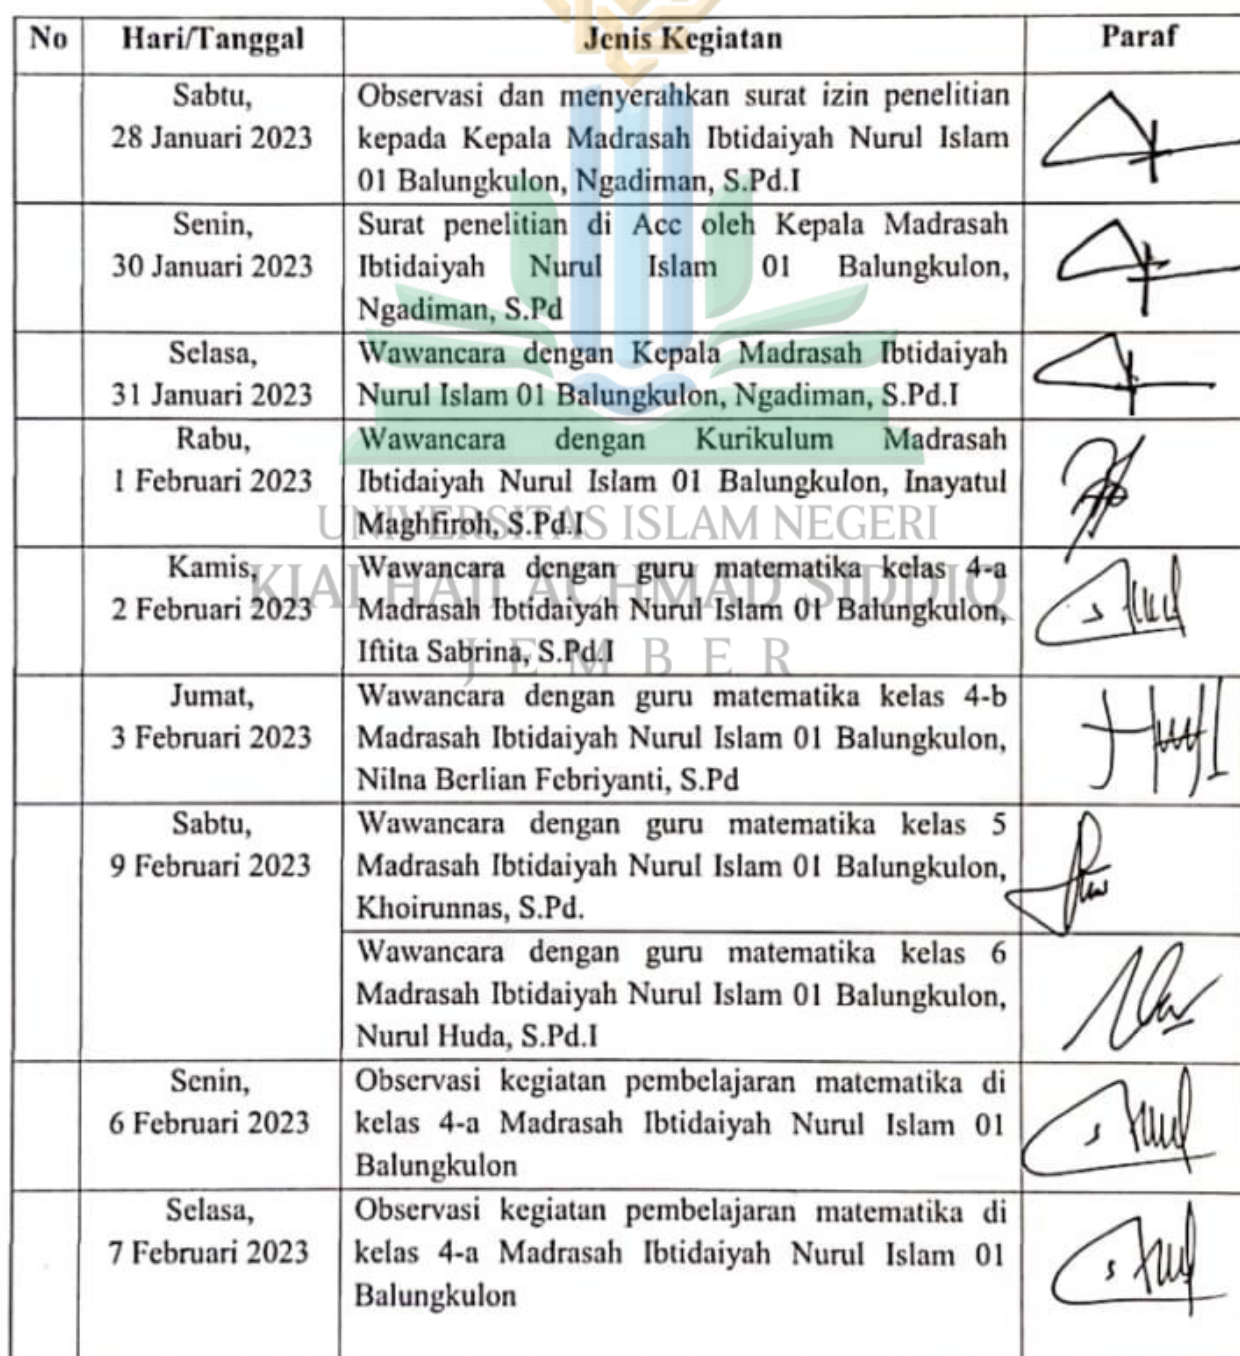 No Hari/Tanggal Jenis Kegiatan Paraf
Sabtu,
28 Januari 2023
Observasi dan menyerahkan surat izin penelitian
kepada Kepala Madrasah Ibtidaiyah Nurul Islam
01 Balungkulon, Ngadiman, S.Pd.I
Senin,
30 Januari 2023
Surat penelitian di Acc oleh Kepala Madrasah
Ibtidaiyah Nurul Islam 01 Balungkulon,
Ngadiman, S.Pd
Selasa,
31 Januari 2023
Wawancara dengan Kepala Madrasah Ibtidaiyah
Nurul Islam 01 Balungkulon, Ngadiman, S.Pd.I
Rabu,
1 Februari 2023
Wawancara dengan Kurikulum Madrasah
Ibtidaiyah Nurul Islam 01 Balungkulon, Inayatul
Maghfiroh, S.Pd.I
Kamis,
2 Februari 2023
Wawancara dengan guru matematika kelas 4-a
Madrasah Ibtidaiyah Nurul Islam 01 Balungkulon,
Iftita Sabrina, S.Pd.I
Jumat,
3 Februari 2023
Wawancara dengan guru matematika kelas 4-b
Madrasah Ibtidaiyah Nurul Islam 01 Balungkulon,
Nilna Berlian Febriyanti, S.Pd
Sabtu,
9 Februari 2023
Wawancara dengan guru matematika kelas 5
Madrasah Ibtidaiyah Nurul Islam 01 Balungkulon,
Khoirunnas, S.Pd.
Wawancara dengan guru matematika kelas 6
Madrasah Ibtidaiyah Nurul Islam 01 Balungkulon,
Nurul Huda, S.Pd.I
Senin,
6 Februari 2023
Observasi kegiatan pembelajaran matematika di
kelas 4-a Madrasah Ibtidaiyah Nurul Islam 01
Balungkulon
Selasa,
7 Februari 2023
Observasi kegiatan pembelajaran matematika di
kelas 4-a Madrasah Ibtidaiyah Nurul Islam 01
Balungkulon
UNIVERSITAS ISLAM NEGERI
KIAI HAJI ACHMAD SIDDIQ
JEMBER